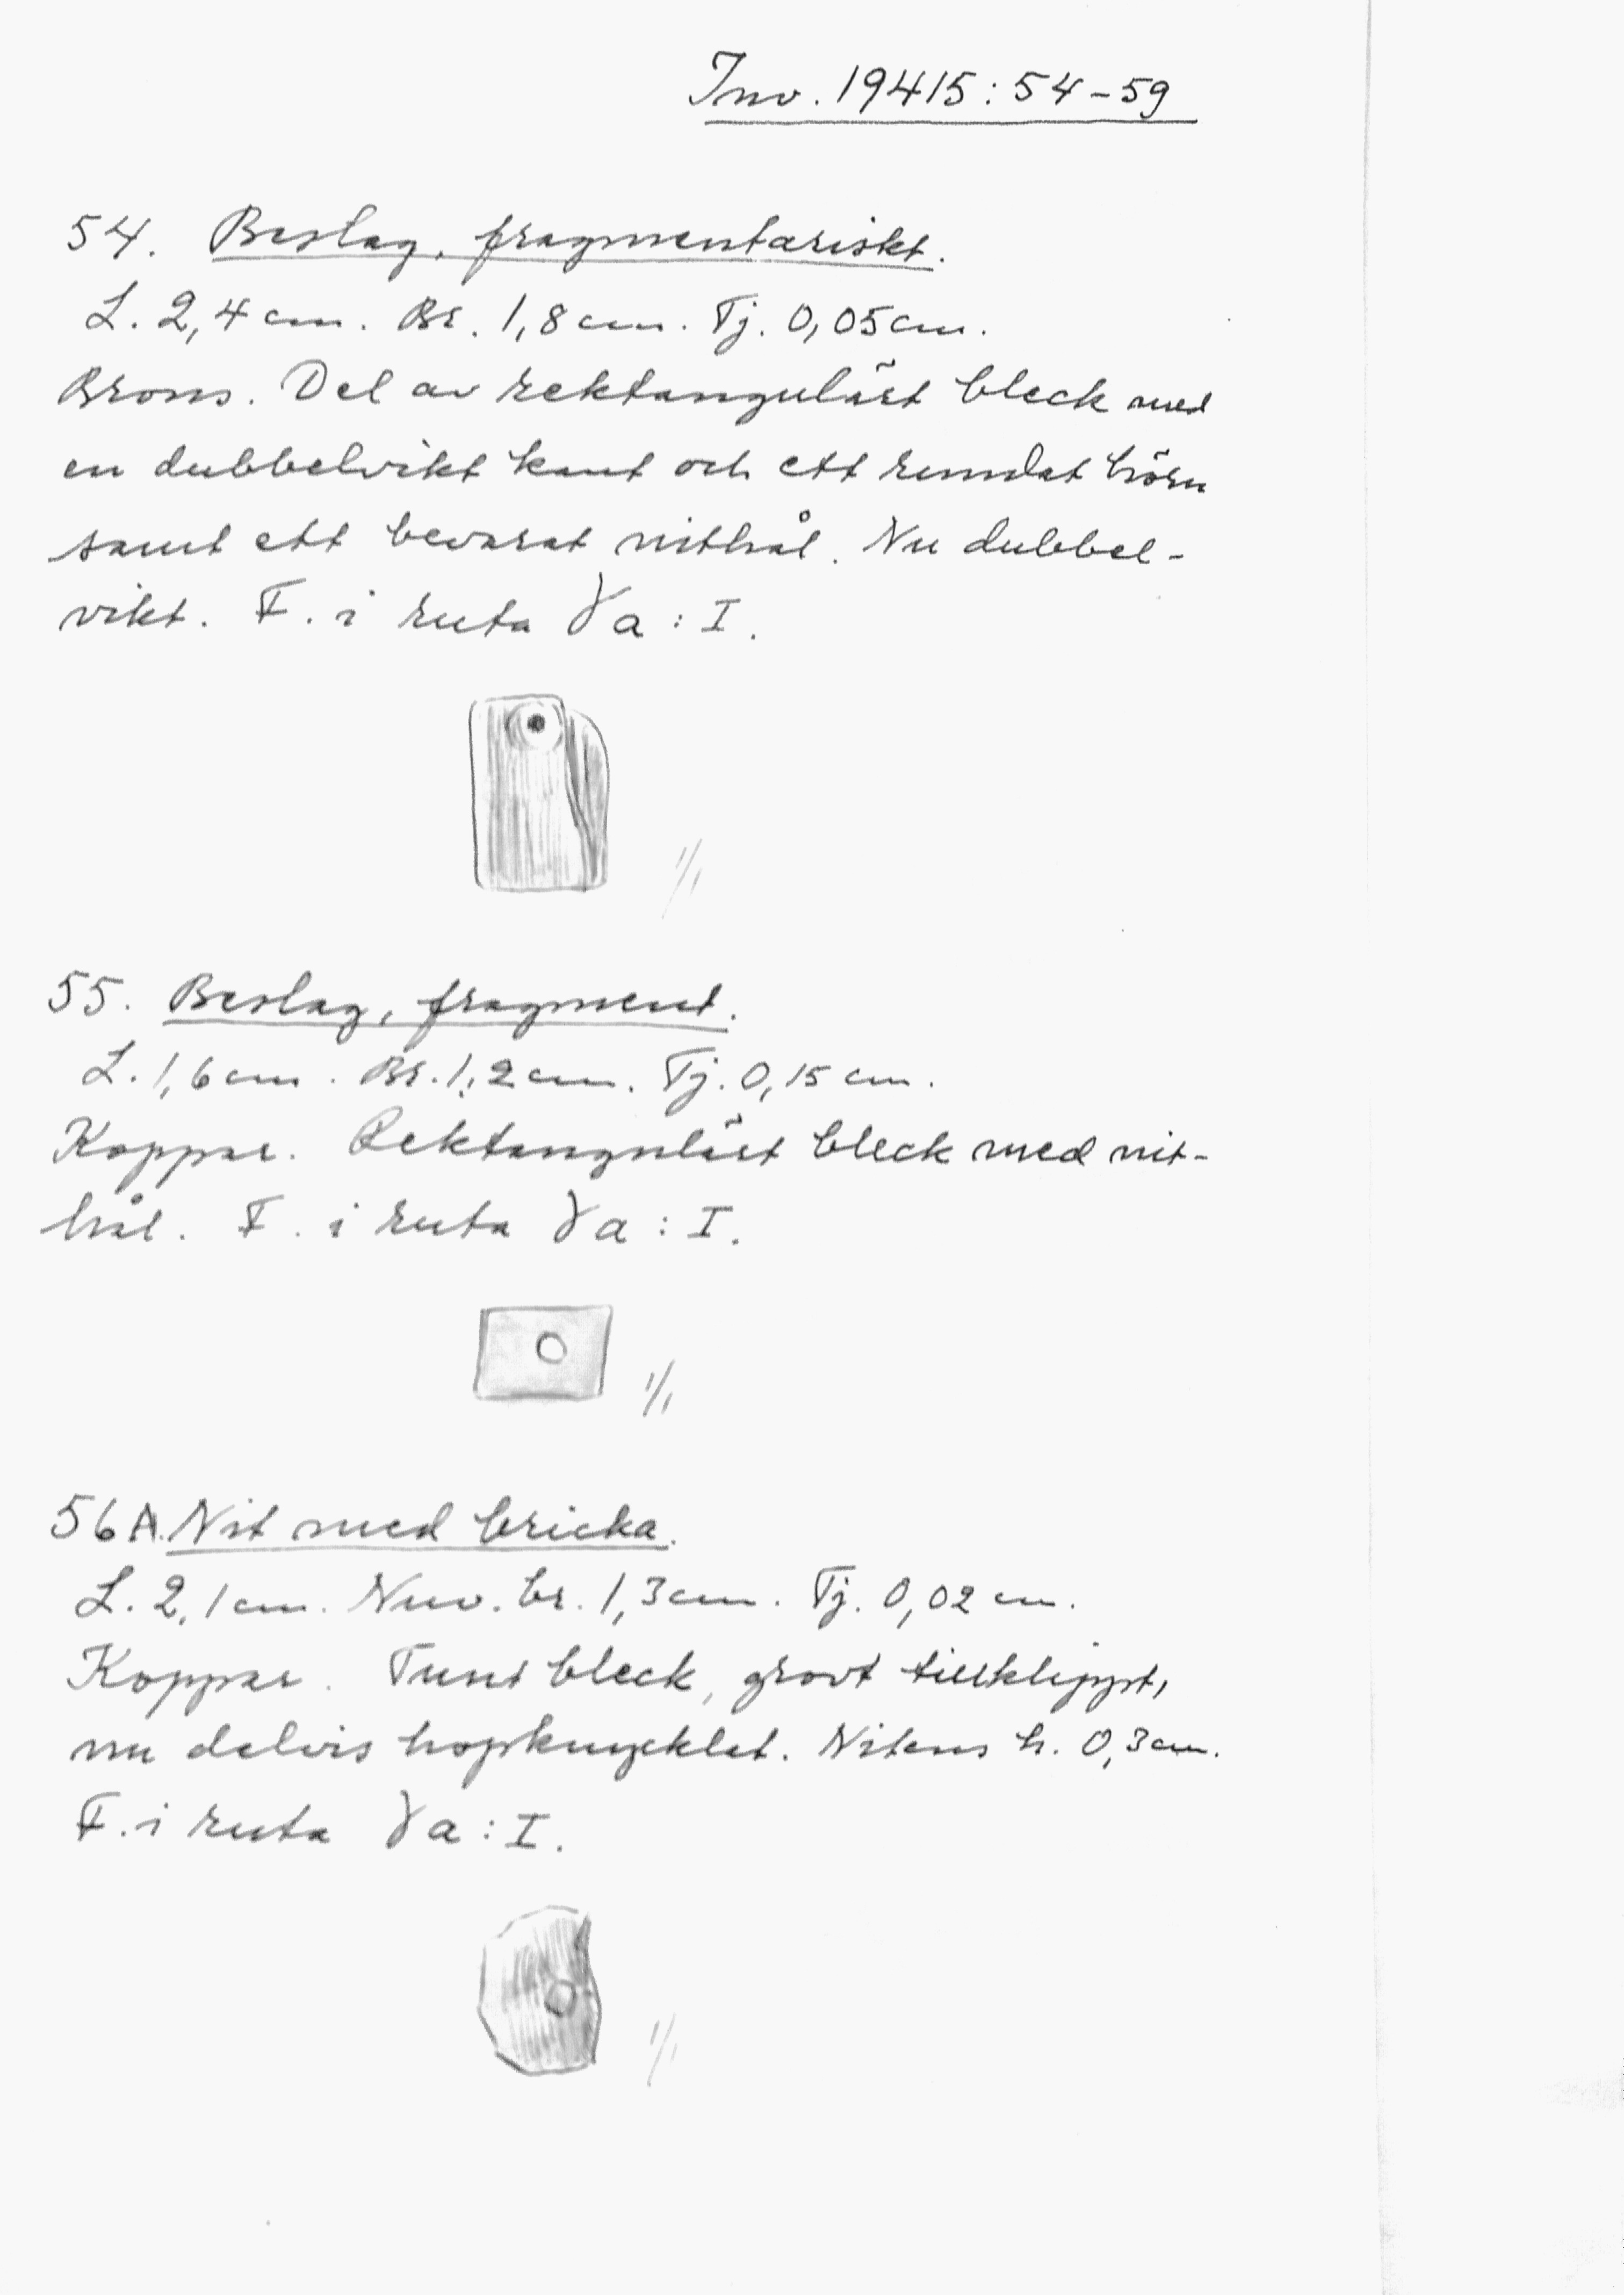 Inv. 19415:54-59
54. Beslag, fragmentariskt.
L. 2,4 cm. Br. 1,8 cm. Tj. 0,05 cm.
Brons. Del av rektangulärt bleck med
en dubbelvikt kant och ett rundat hörn
samt ett bevarat nithål. Nu dubbel-
vikt. F. i ruta γa:I.
1/1
55. Beslag, fragment.
L. 1,6 cm. Br. 1,2 cm. Tj. 0,15 cm.
Koppar. Rektangulärt bleck med nit-
hål. F. i ruta γa:I.
1/1
56A. Nit med bricka.
L. 2,1 cm. Nuv. br. 1,3 cm. Tj. 0,02 cm.
Koppar. Tunt bleck, grovt tillklippt,
nu delvis hopknycklat. Nitens h. 0,3 cm.
F. i ruta γa:I.
1/1